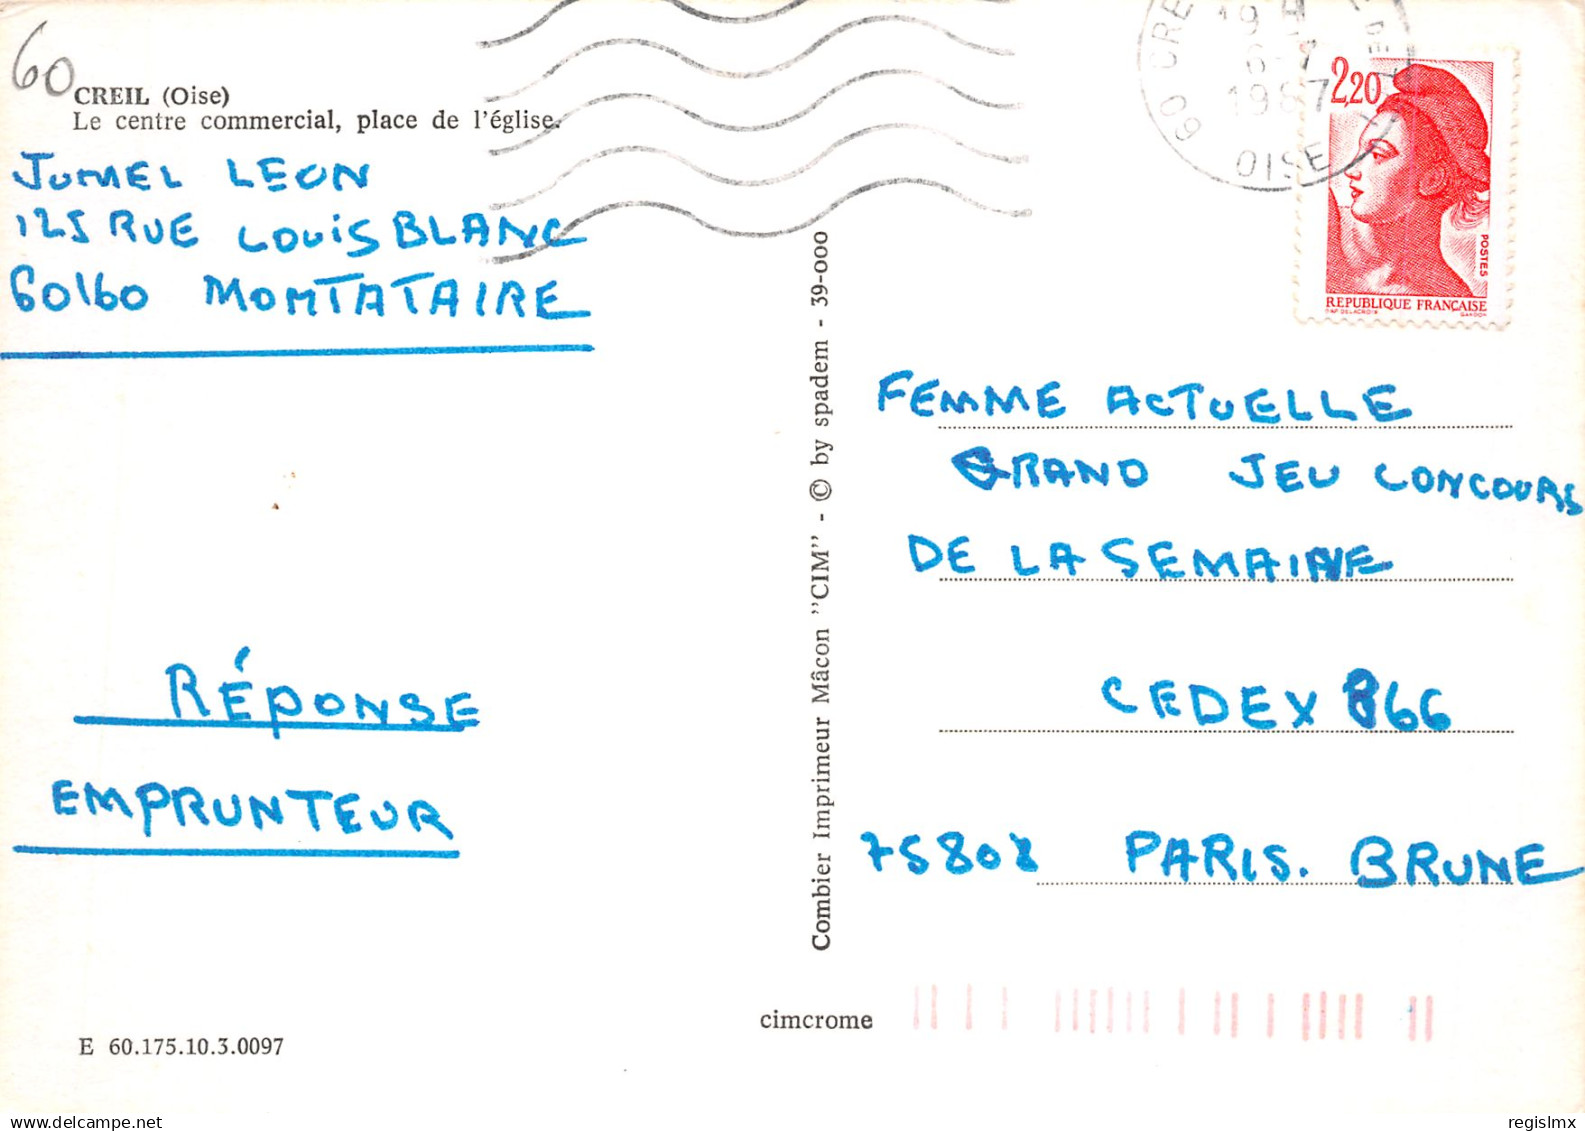 60
CREIL (Oise)
Le centre commercial, place de l'église.
JUMEL LEON
125 RUE LOUIS BLANC
60160 MOMTATAIRE
RÉPONSE
EMPRUNTEUR
E 60.175.10.3.0097
Combier Imprimeur Mâcon "CIM" - © by spadem - 39-000
cimcrome
60 CRE
19 H
6-7
1987
OISE
2,20
POSTES
REPUBLIQUE FRANÇAISE
D'AP. DELACROIX GANDON
FEMME ACTUELLE
GRAND JEU CONCOURS
DE LA SEMAINE
CEDEX 866
75808 PARIS. BRUNE
www.delcampe.net
regislmx